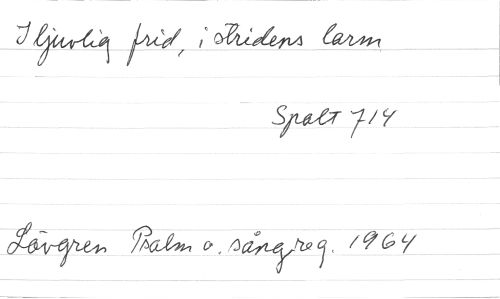 I ljuvlig frid, i stridens larm
Spalt 714
Lövgren Psalm o. sångreg. 1964